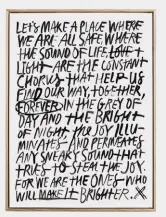 LET'S MAKE A PLACE WHERE
WE ARE ALL SAFE WHERE
THE SOUND OF LIFE LOVE +
LIGHT ARE THE CONSTANT
CHORUS THAT HELP US
FIND OUR WAY, TOGETHER,
FOREVER IN THE GREY OF
DAY AND THE BRIGHT
OF NIGHT THE JOY ILLU
MINATES AND PERMEATES
ANY SNEAKY SOUND THAT
TRIES TO STEAL THE JOY.
FOR WE ARE THE ONES WHO
WILL MAKE IT BRIGHTER. X